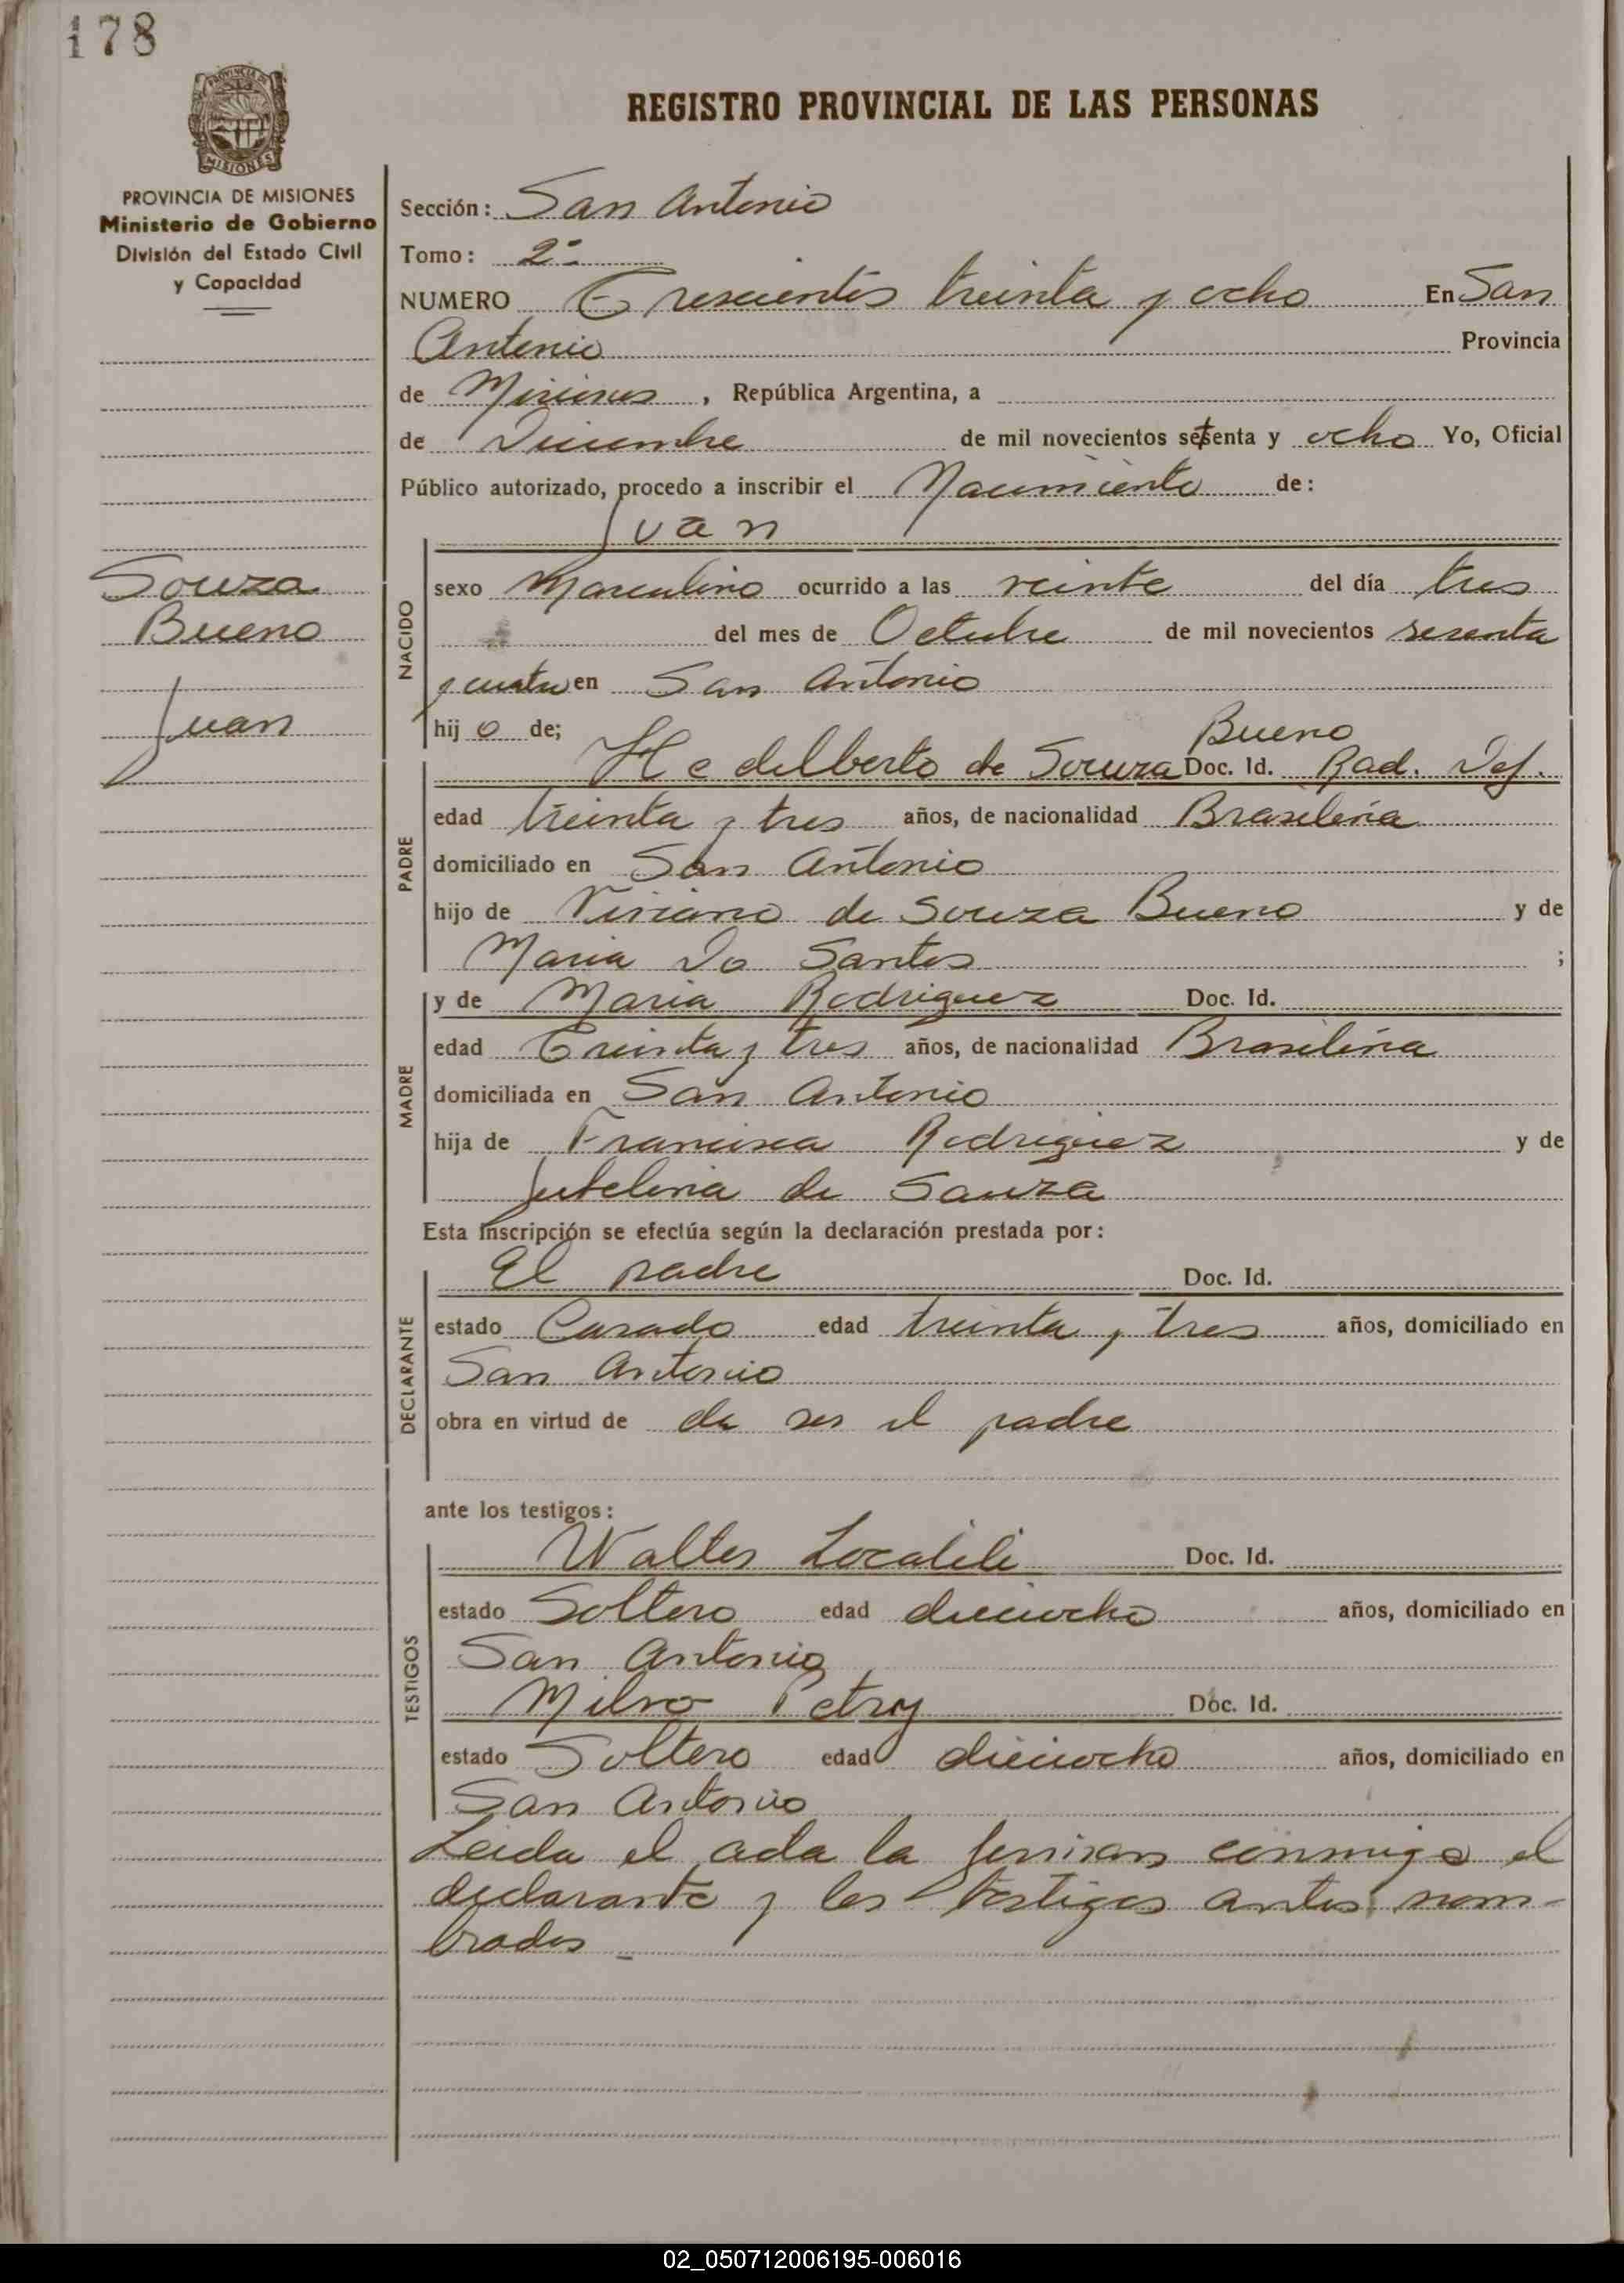 178
PROVINCIA DE MISIONES
REGISTRO PROVINCIAL DE LAS PERSONAS
PROVINCIA DE MISIONES
Ministerio de Gobierno
División del Estado Civil
y Capacidad
Souza
Bueno
Juan
Sección: San Antonio
Tomo: 2º
NUMERO Trescientos treinta y ocho En San
Antonio Provincia
de Misiones, República Argentina, a
de Diciembre de mil novecientos setenta y ocho Yo, Oficial
Público autorizado, procedo a inscribir el Nacimiento de:
Juan
NACIDO
sexo Masculino ocurrido a las veinte del día tres
del mes de Octubre de mil novecientos sesenta
y cuatro en San Antonio
hijo de;
Bueno
PADRE
Hedelberto de Souza Doc. Id. Rad. Def.
edad treinta y tres años, de nacionalidad Brasileña
domiciliado en San Antonio
hijo de Viriano de Souza Bueno y de
Maria Do Santos ;
MADRE
y de Maria Rodriguez Doc. Id.
edad Treinta y tres años, de nacionalidad Brasileña
domiciliada en San Antonio
hija de Francisca Rodriguez y de
de Sauza
Esta inscripción se efectúa según la declaración prestada por:
DECLARANTE
El padre Doc. Id.
estado Casado edad treinta y tres años, domiciliado en
San Antonio
obra en virtud de de ser el padre
ante los testigos:
TESTIGOS
Walter Doc. Id.
estado Soltero edad dieciocho años, domiciliado en
San Antonio
Milvo Petry Doc. Id.
estado Soltero edad dieciocho años, domiciliado en
San Antonio
Leida el acta la firman conmigo el
declarante y los testigos antes nom-
brados
02_050712006195-006016